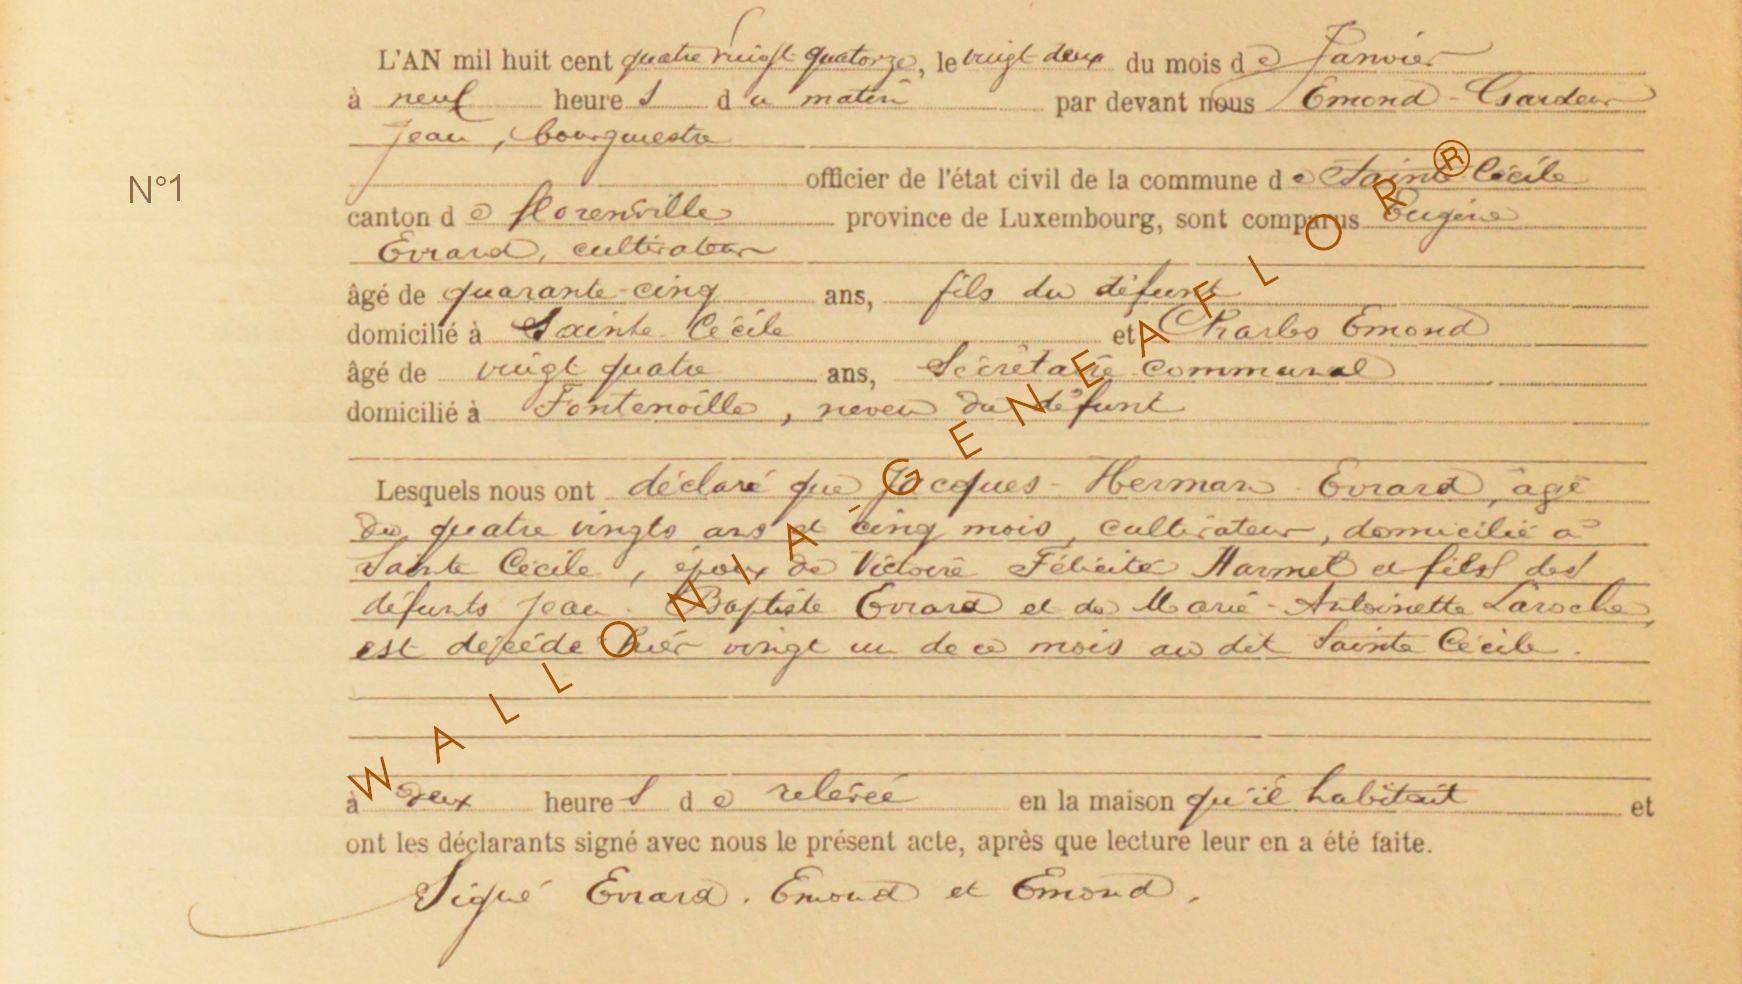 L'AN mil huit cent quatre vingt quatorze, le vingt deux du mois de Janvier
à neuf heures du matin par devant nous Emond-Gardeur
Jean, bourgmestre
officier de l'état civil de la commune de Sainte Cécile
N°1
canton de florenville province de Luxembourg, sont comparus Eugène
Evrard, cultivateur
âgé de quarante-cinq ans, fils du défunt
domicilié à Sainte Cécile et Charles Emond
âgé de vingt quatre ans, Sécrétaire communal
domicilié à Fontenoille, neveu du défunt
Lesquels nous ont déclaré que Jacques-Herman Evrard, âgé
de quatre vingts ans et cinq mois, cultivateur, domicilié à
Sainte Cécile, époux de Victoire Félicité Harmel et fils des
défunts Jean-Baptiste Evrard et de Marie-Antoinette Laroche,
est décédé hier vingt un de ce mois au dit Sainte Cécile.
à deux heures de relevée en la maison qu'il habitait et
ont les déclarants signé avec nous le présent acte, après que lecture leur en a été faite.
Signé Evrard. Emond et Emond.
WALLONIA-GENEAFLOR®